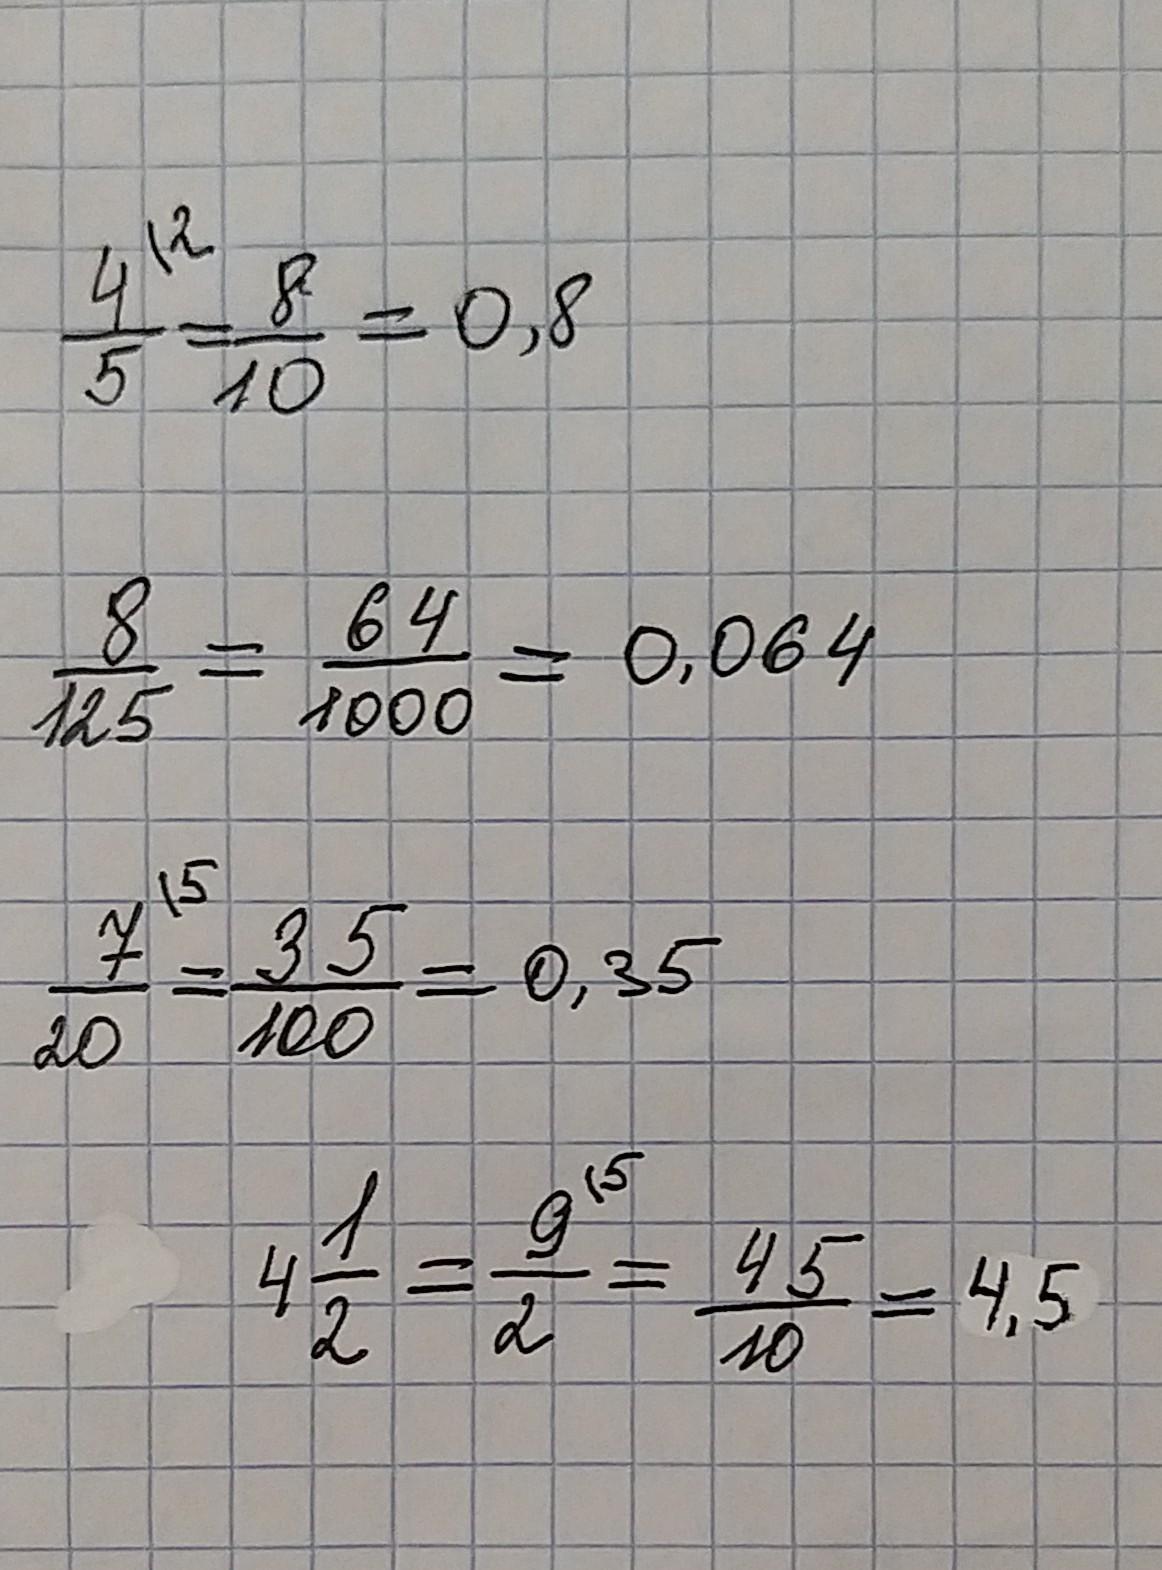 4/5 \2 = 8/10 = 0,8
8/125 = 64/1000 = 0,064
7/20 \5 = 35/100 = 0,35
4 1/2 = 9/2 \5 = 45/10 = 4,5